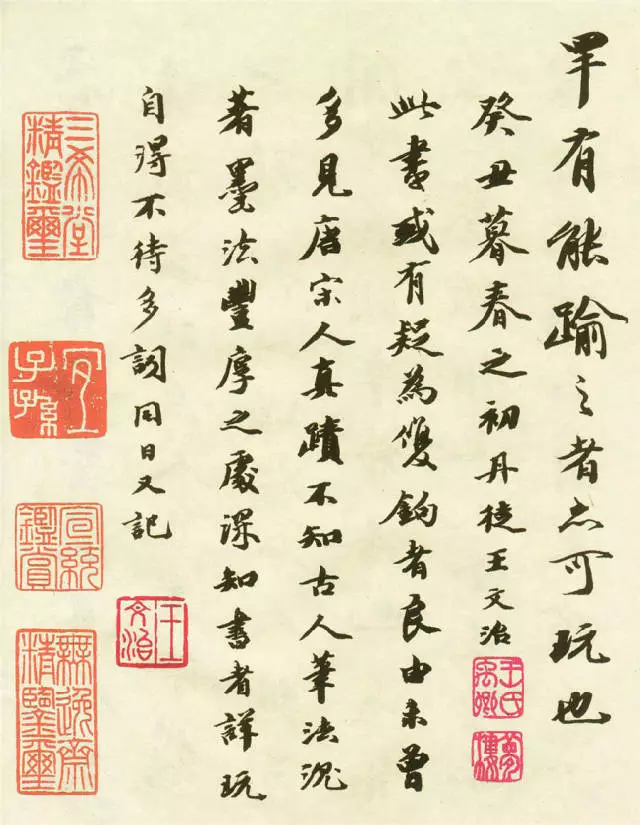 罕有能踰之者亦可玩也
癸丑暮春之初丹徒王文治
王氏禹卿
夢樓
此書或有疑為雙鉤者良由未曾
多見唐宋人真蹟不知古人筆法沉
著墨法豐厚之處深知書者詳玩
自得不待多詞同日又記
王文治
三希堂精鑑璽
宜子孫
宣統鑑賞
無逸齋精鑒璽